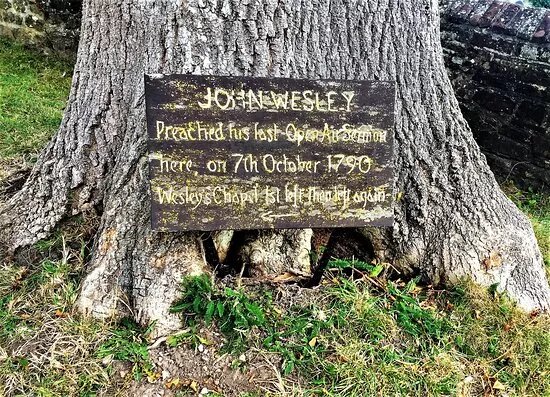 JOHN WESLEY
Preached his last Open Air Sermon
here, on 7th October 1790
Wesley's Chapel 1st left then left again